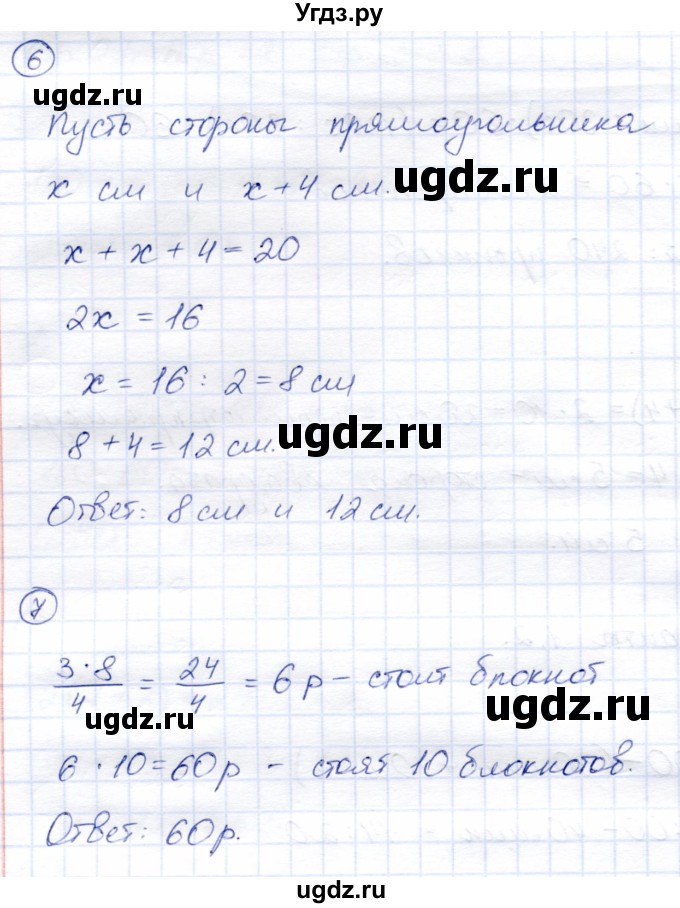 Угдз.ру
6
ugdz.ru
Пусть стороны прямоугольника
x см и x + 4 см.
ugdz.ru
x + x + 4 = 20
2x = 16
x = 16 : 2 = 8 см
8 + 4 = 12 см.
ugdz.ru
Ответ: 8 см и 12 см.
7
3·8/4 = 24/4 = 6 р – стоит блокнот
ugdz.ru ugdz.ru
6 · 10 = 60 р – стоят 10 блокнотов.
Ответ: 60 р.
ugdz.ru